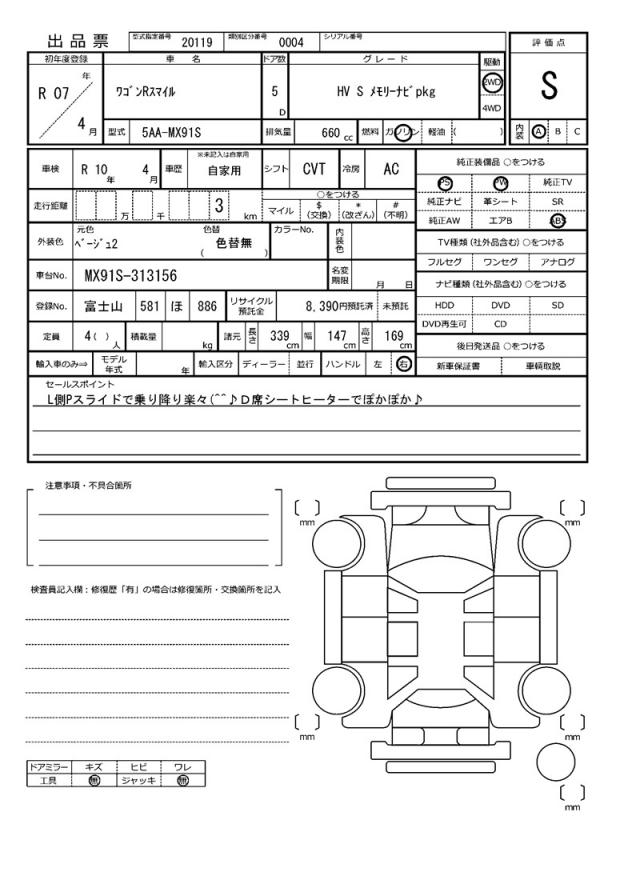 出品票 型式指定番号 20119 類別区分番号 0004 シリアル番号
評価点
S
内装 A B C
初年度登録 車名 ドア数 グレード 駆動
R 07 年 4 月 ワゴンRスマイル 5 D HV S メモリーナビpkg 2WD 4WD
型式 5AA-MX91S 排気量 660 cc 燃料 ガソリン 軽油 ( )
車検 R 10 年 4 月 車歴 ※未記入は自家用 自家用 シフト CVT 冷房 AC
走行距離 万 千 3 km ○をつける マイル $ (交換) * (改ざん) # (不明)
外装色 元色 ベージュ2 色替 色替無 ( ) カラーNo. 内装色
車台No. MX91S-313156 名変期限 月 日
登録No. 富士山 581 ほ 886 リサイクル預託金 8,390円預託済 未預託
定員 4( ) 人 積載量 kg 諸元 長さ 339 cm 幅 147 cm 高さ 169 cm
輸入車のみ⇒ モデル年式 年 輸入区分 ディーラー 並行 ハンドル 左 右
純正装備品 ○をつける
PS PW 純正TV
純正ナビ 革シート SR
純正AW エアB ABS
TV種類 (社外品含む) ○をつける
フルセグ ワンセグ アナログ
ナビ種類 (社外品含む) ○をつける
HDD DVD SD
DVD再生可 CD
後日発送品 ○をつける
新車保証書 車輌取説
セールスポイント
L側Pスライドで乗り降り楽々(^^♪D席シートヒーターでぽかぽか♪
注意事項・不具合箇所
検査員記入欄：修復歴「有」の場合は修復箇所・交換箇所を記入
mm
mm
mm
mm
mm
ドアミラー キズ ヒビ ワレ
工具 無 ジャッキ 無